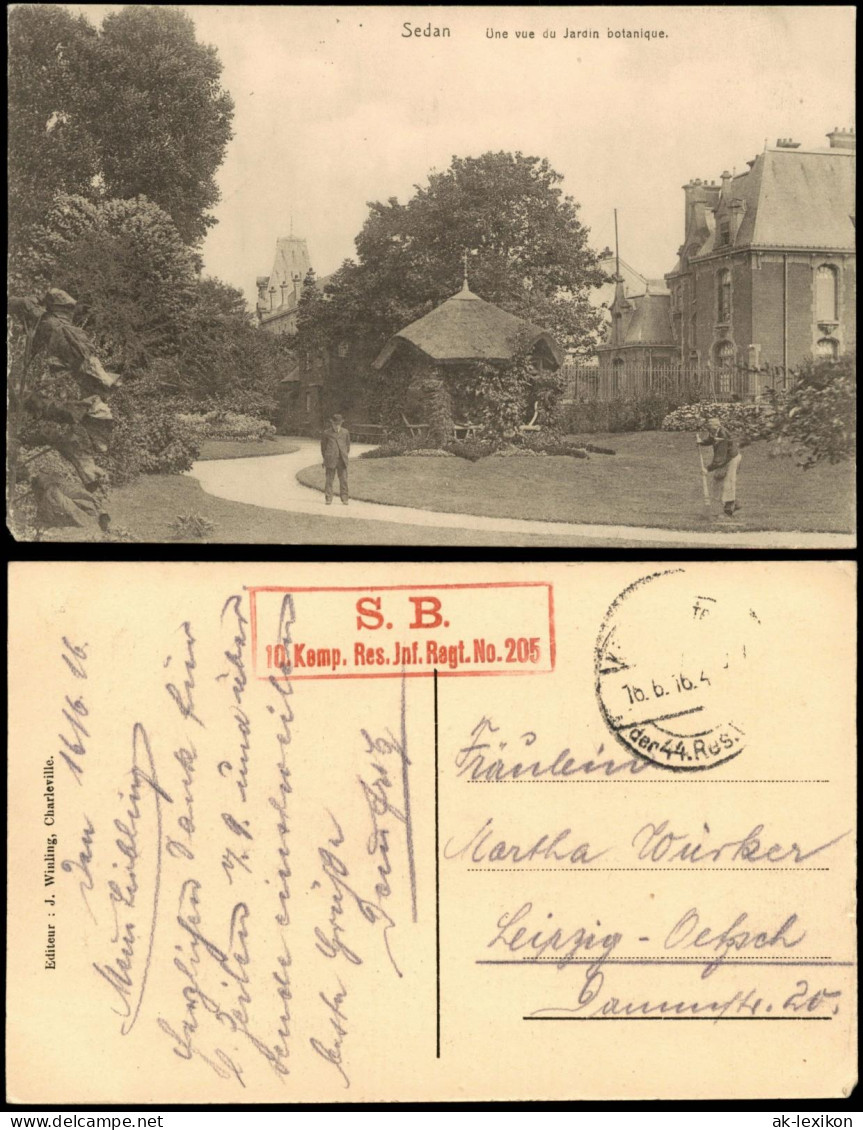 Sedan Une vue du Jardin botanique.
S. B.
10. Komp. Res. Inf. Regt. No. 205
16.6.16.4
der 44. Res.
Editeur : J. Winling, Charleville.
Den 16/6. 16.
Mein Liebling
Herzlichen Dank für
l. Zeilen v. 9. und über
sende einstweilen
beste Grüße
Dein Fritz
Fräulein
Martha Würker
Leipzig - Oetzsch
Dammstr. 20.
ak-lexikon